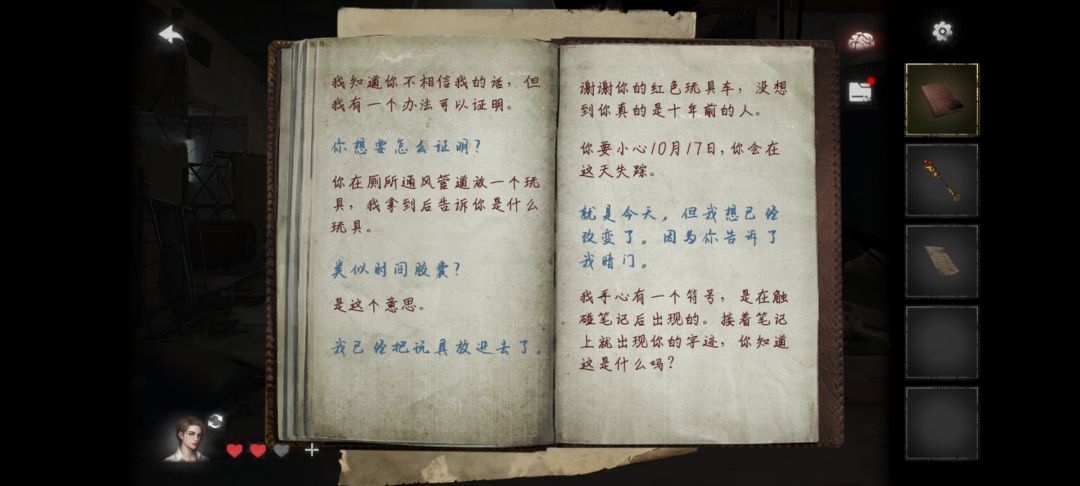 我知道你不相信我的话，但
我有一个办法可以证明。
你想要怎么证明？
你在厕所通风管道放一个玩
具，我拿到后告诉你是什么
玩具。
类似时间胶囊？
是这个意思。
我已经把玩具放进去了。
谢谢你的红色玩具车，没想
到你真的是十年前的人。
你要小心10月17日，你会在
这天失踪。
就是今天，但我想已经
改变了。因为你告诉了
我暗门。
我手心有一个符号，是在触
碰笔记后出现的。接着笔记
上就出现你的字迹，你知道
这是什么吗？